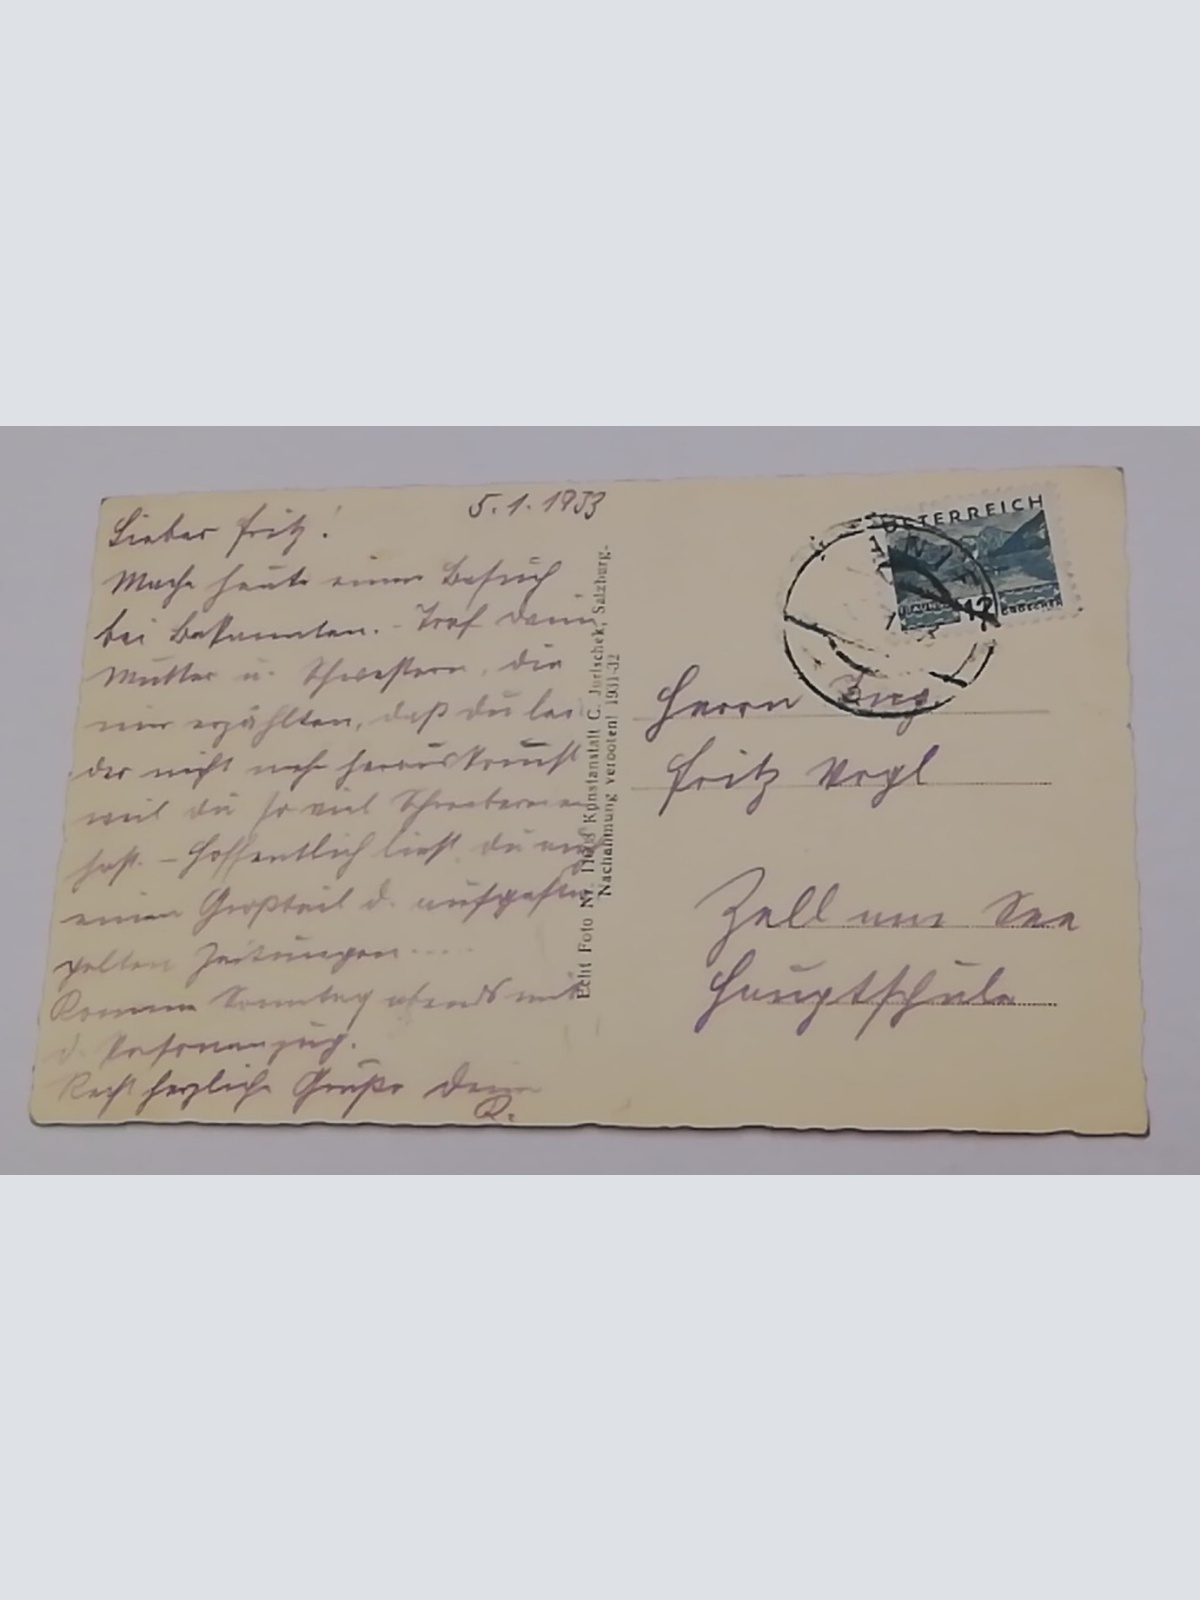 5.1.1933
Lieber Fritz!
Mache heute einen Besuch
bei Bekannten. - Traf Deine
Mutter u. Schwestern, die
mir erzählten, daß du lei
der nicht mehr herauskommst
weil du so viel
hast. - Hoffentlich liest du auch
einen Großteil d. aufgesta
pelten Zeitungen....
Komme Sonntag abends mit
d. Personenzug.
Recht herzliche Grüße Dein
R.
Echt Foto Nr. Kunstanstalt C. Jurischek, Salzburg.
Nachahmung verboten! 1931-32
ÖSTERREICH
12 GROSCHEN
Herrn Ing.
Fritz Vogl
Zell am See
Hauptschule